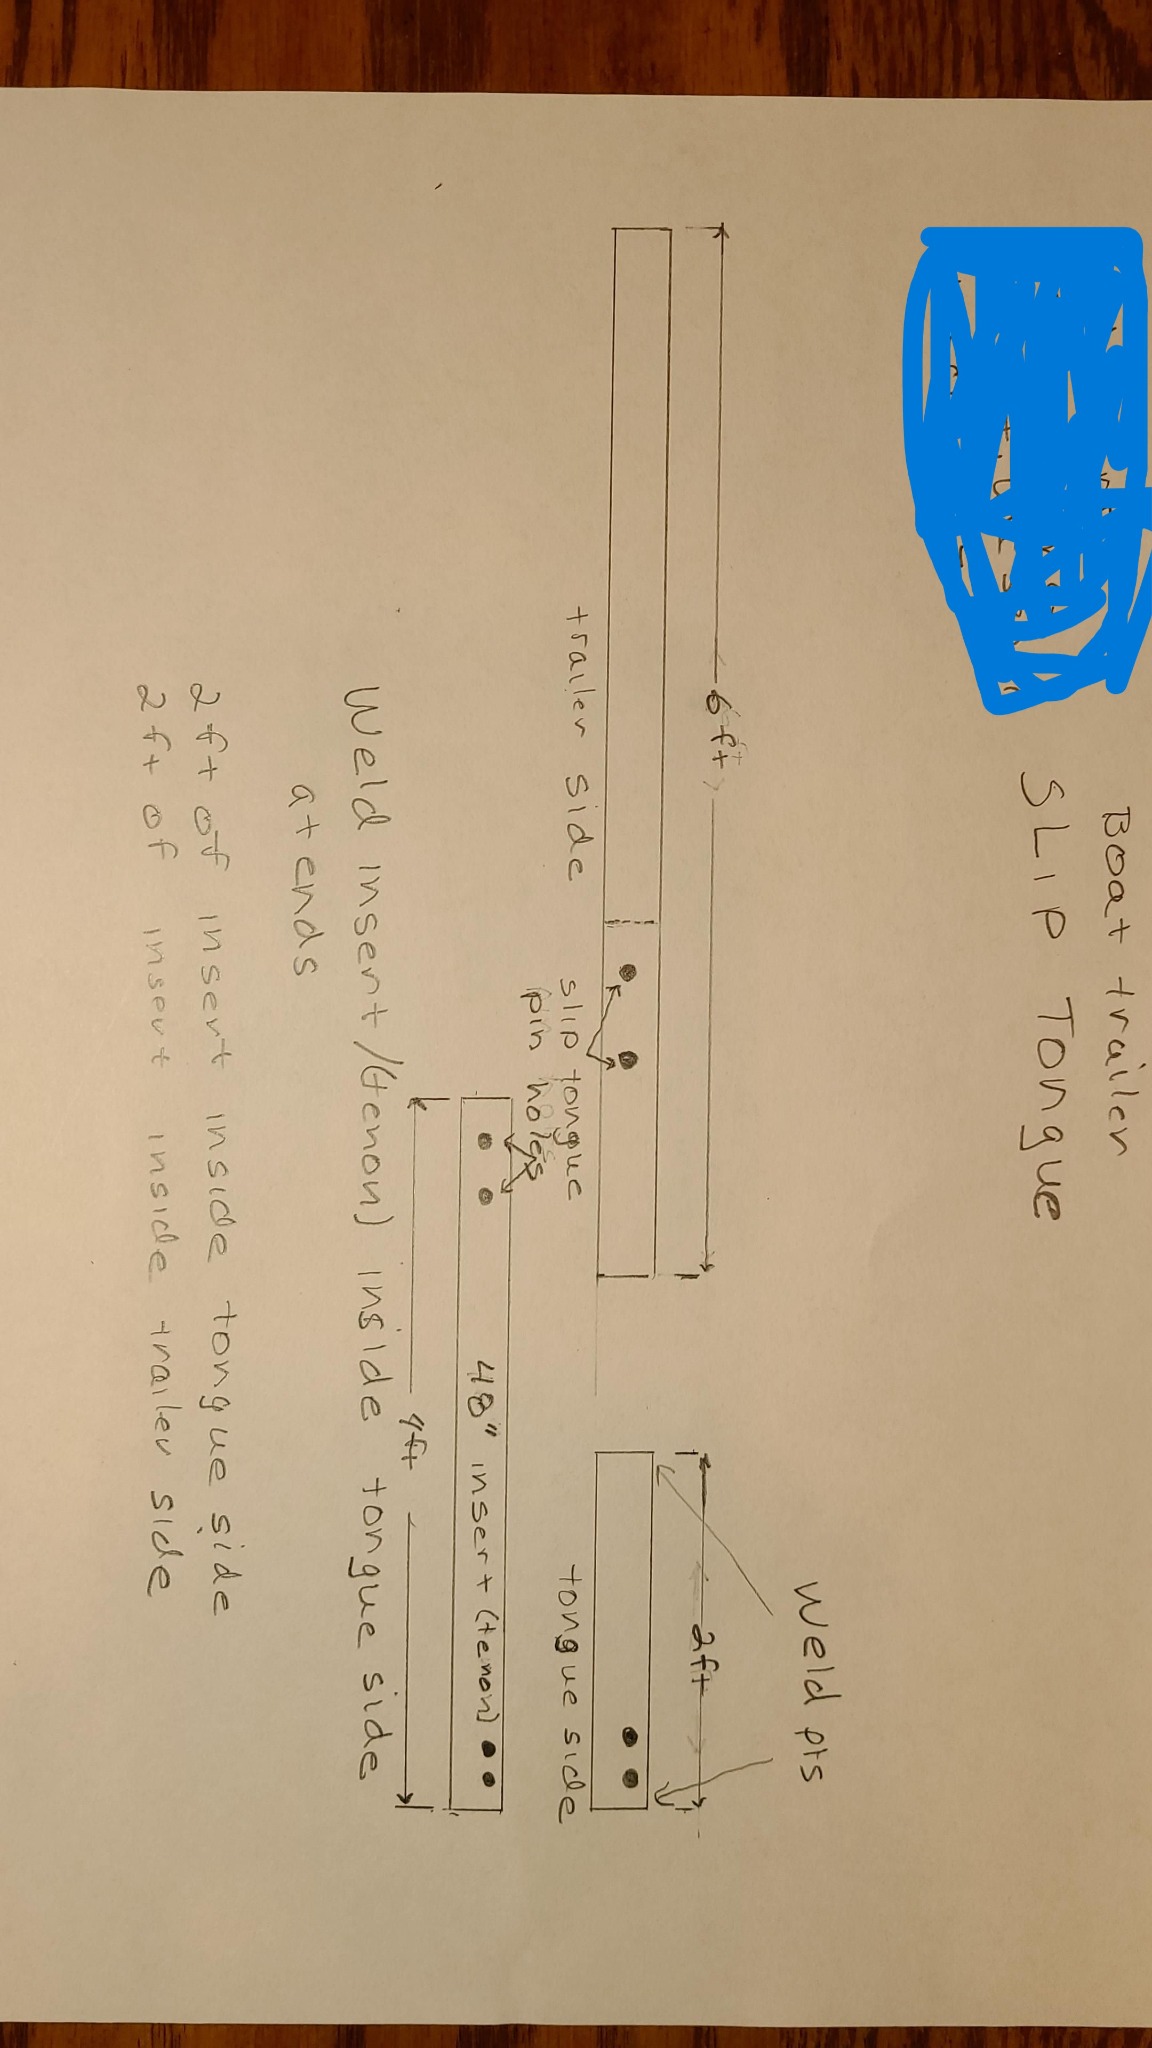 Boat trailer
SLIP Tongue
Weld pts
6ft
2ft
trailer side
slip tongue
pin holes
tongue side
48" insert (tenon)
4ft
Weld insert/(tenon) inside tongue side
at ends
2ft of insert inside tongue side
2ft of insert inside trailer side